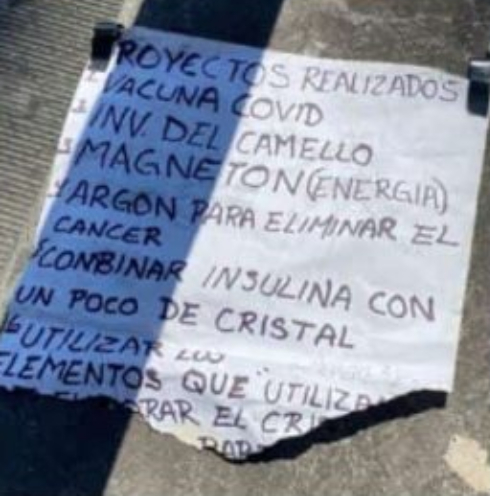 PROYECTOS REALIZADOS
1 VACUNA COVID
2 INV. DEL CAMELLO
3 MAGNETON (ENERGIA)
4 ARGON PARA ELIMINAR EL
CANCER
5 CONBINAR INSULINA CON
UN POCO DE CRISTAL
6 UTILIZAR LOS
ELEMENTOS QUE "UTILIZA
RAR EL CRI
PAR